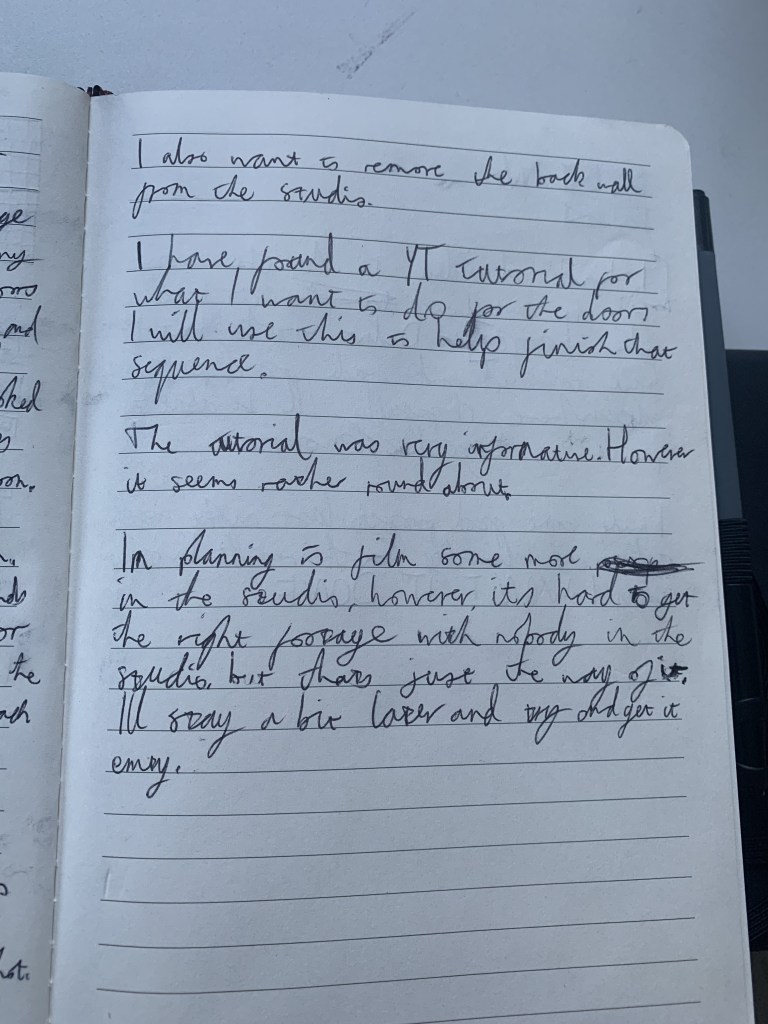 I also want to remove the back wall
from the studio.
I have found a YT tutorial for
what I want to do for the doors
I will use this to help finish that
sequence.
The tutorial was very informative. However
it seems rather round about.
Im planning to film some more
in the studio, however, its hard to get
the right footage with nobody in the
studio, but thats just the way of it.
Ill stay a bit later and try and get it
ge
ny
and
the
hot.